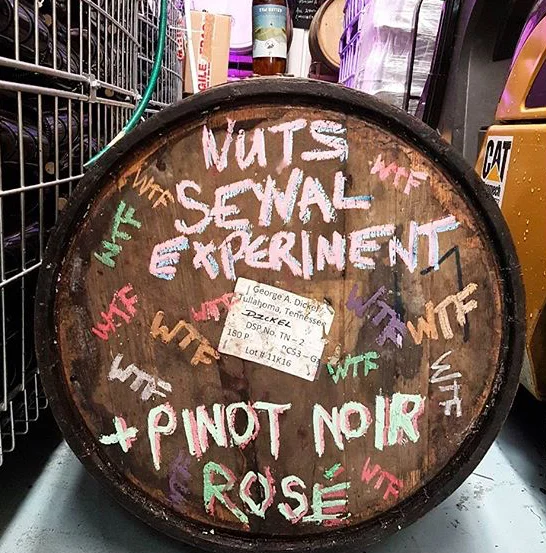 NUTS
SEYVAL
EXPERIMENT
WTF
WTF
WTF
WTF
WTF
WTF
WTF
WTF
WTF
WTF
WTF
WTF
George A. Dickel
Tullahoma, Tennessee
DICKEL
DSP. No. TN - 2
180 P
Lot # 11K16
+ PINOT NOIR
ROSÉ
CAT